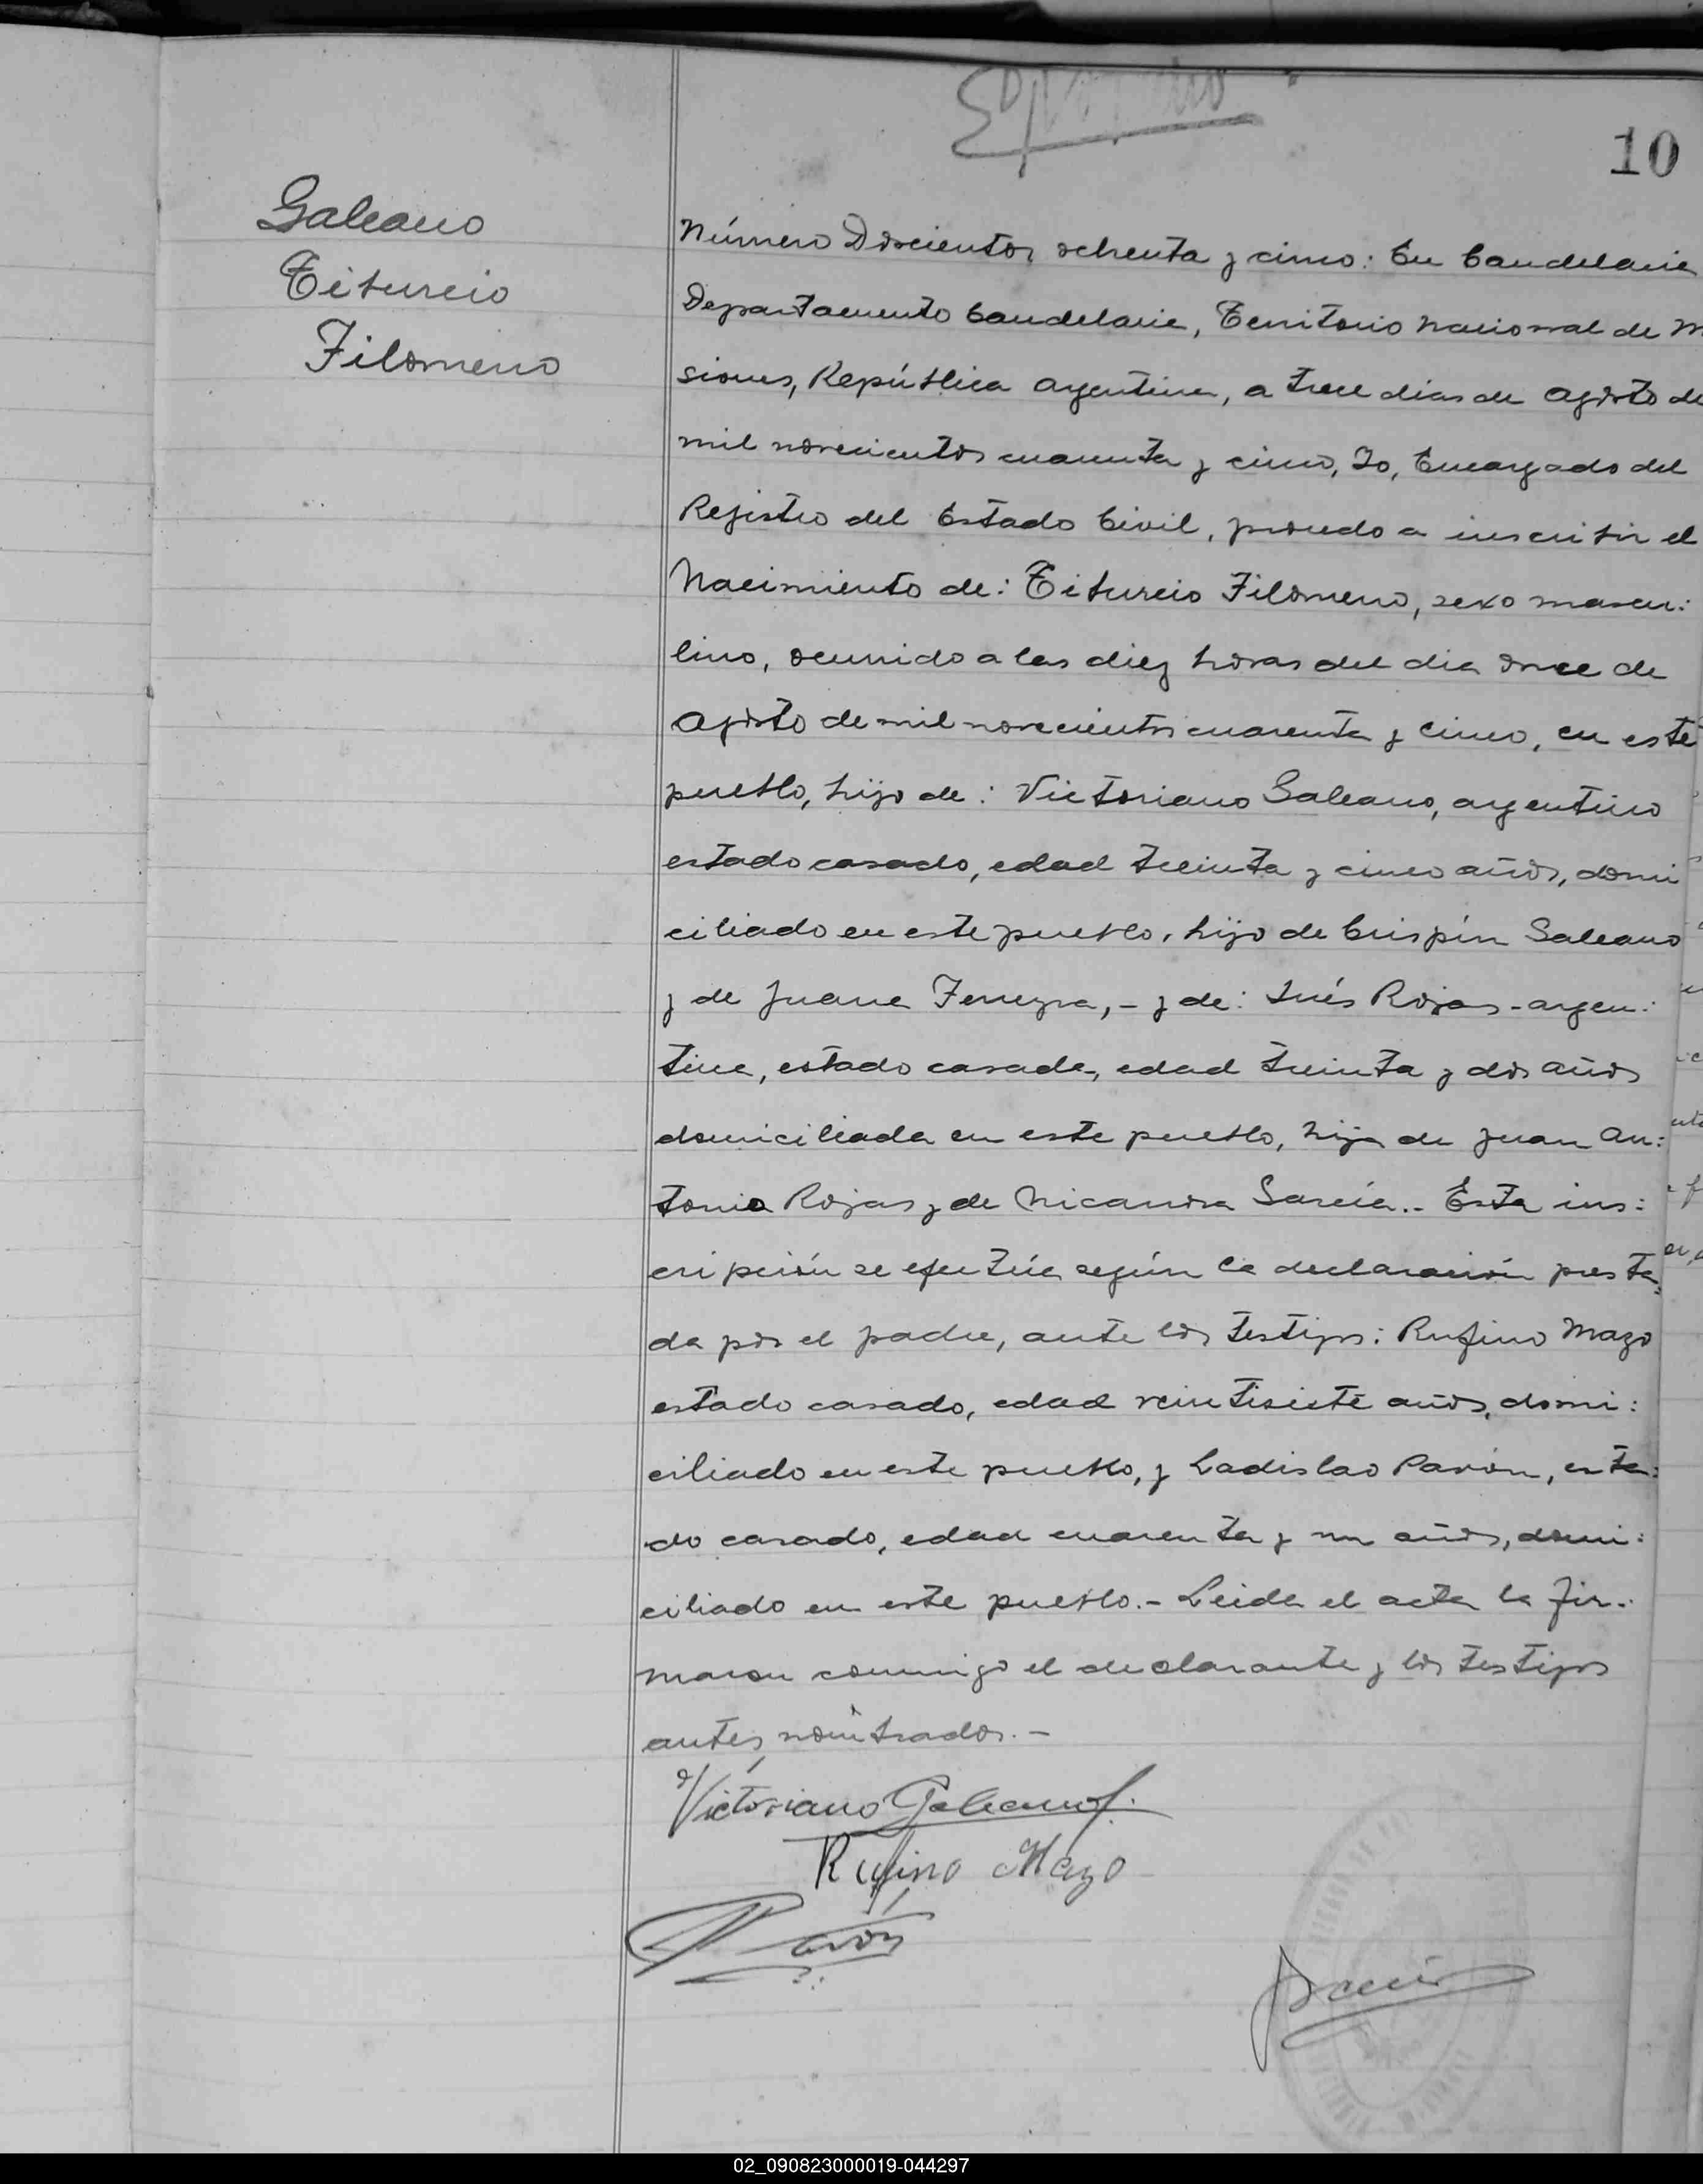 10
Galeano
Tiburcio
Filomeno
Número Doscientos ochenta y cinco: En Candelaria
Departamento Candelaria, Territorio Nacional de M
siones, República Argentina, a trece días de Agosto de
mil novecientos cuarenta y cinco, Yo, Encargado del
Registro del Estado Civil, procedo a inscribir el
Nacimiento de: Tiburcio Filomeno, sexo mascu:
lino, ocurrido a las diez horas del dia once de
Agosto de mil novecientos cuarenta y cinco, en este
pueblo, hijo de: Victoriano Galeano, argentino
estado casado, edad treinta y cinco años, domi
ciliado en este pueblo, hijo de Crispín Galeano
y de Juana Ferreyra, - y de: Inés Rojas - argen:
tina, estado casada, edad treinta y dos años
domiciliada en este pueblo, hija de Juan An:
tonio Rojas y de Nicanora García.. Esta ins:
cripción se efectúa según la declaración presta
da por el padre, ante los testigos: Rufino Mazo
estado casado, edad veintisiete años, domi:
ciliado en este pueblo, y Ladislao Pavón, esta:
do casado, edad cuarenta y un años, domi:
ciliado en este pueblo. - Leida el acta la fir.:
maron conmigo el declarante y los testigos
antes nombrados. -
Victoriano Galeano
Rufino Mazo
Pavón
02_090823000019-044297